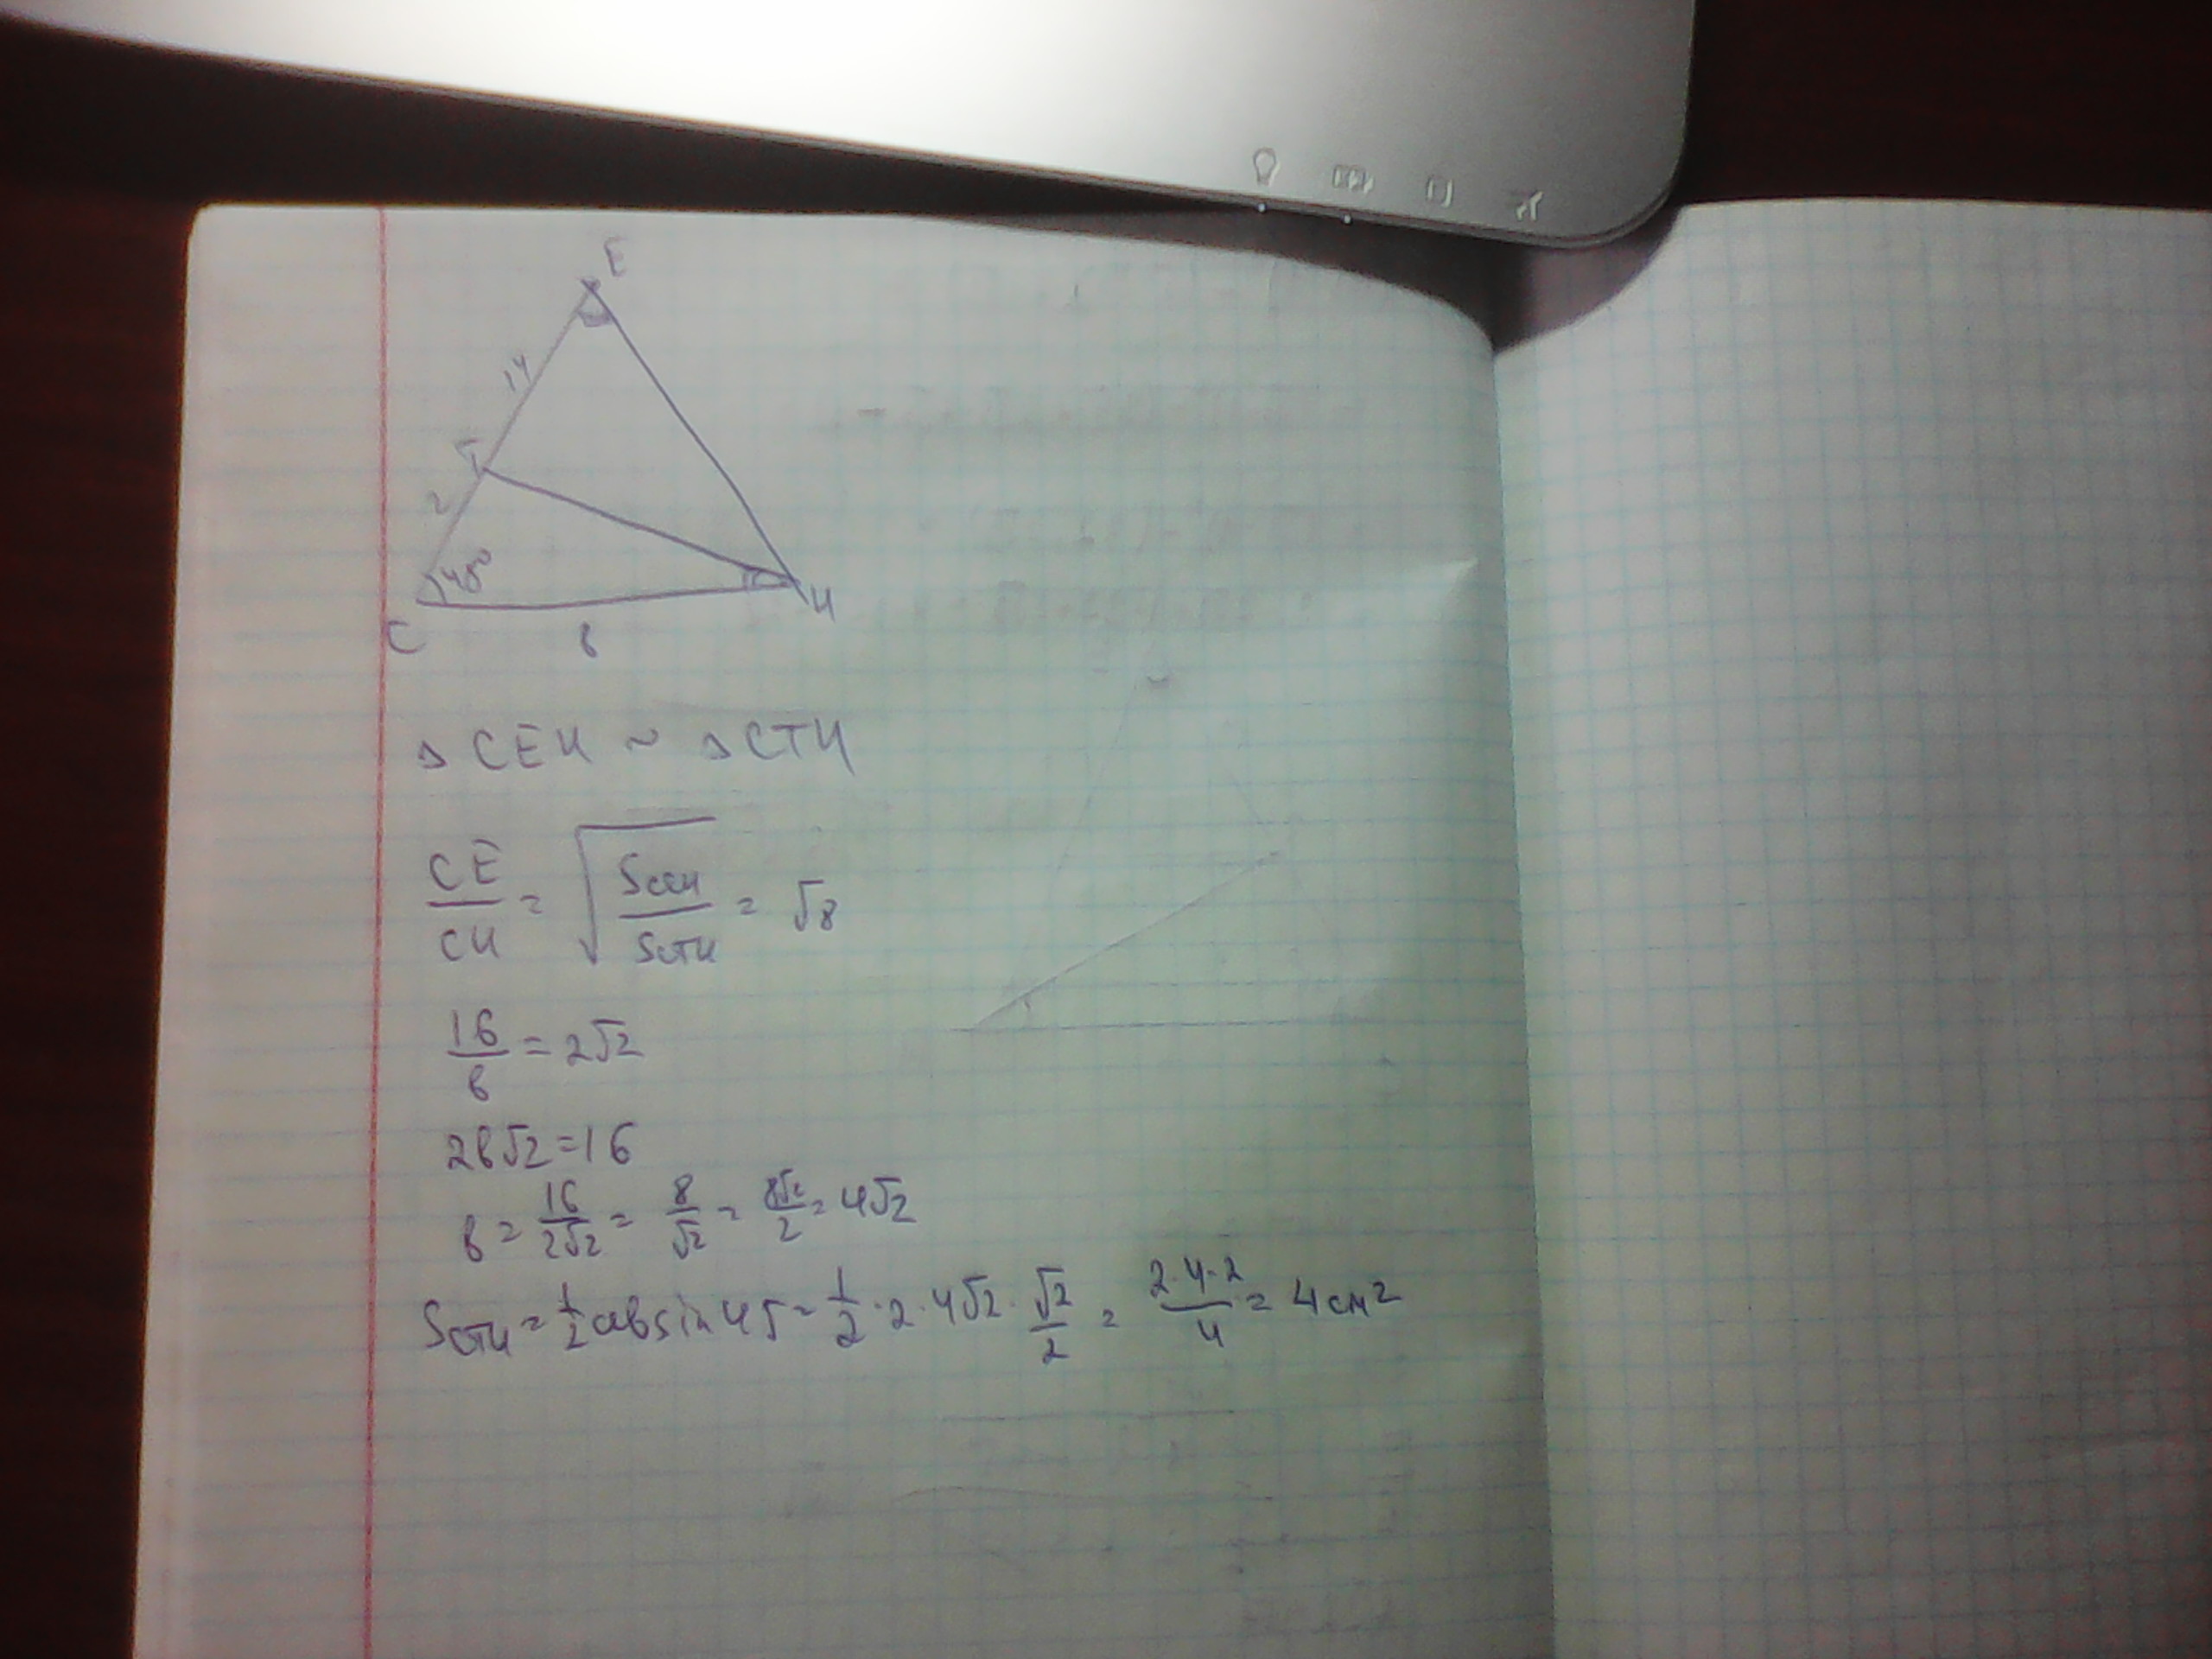 E
14
T
2
45°
C
в
И
△ CEИ ~ △ CTИ
CE/CИ = √(SCEИ/SCTИ) = √8
16/в = 2√2
2в√2=16
в = 16/2√2 = 8/√2 = 8√2/2 = 4√2
SCTИ = 1/2 aвsin45 = 1/2 · 2 · 4√2 · √2/2 = 2·4·2/4 = 4 см²